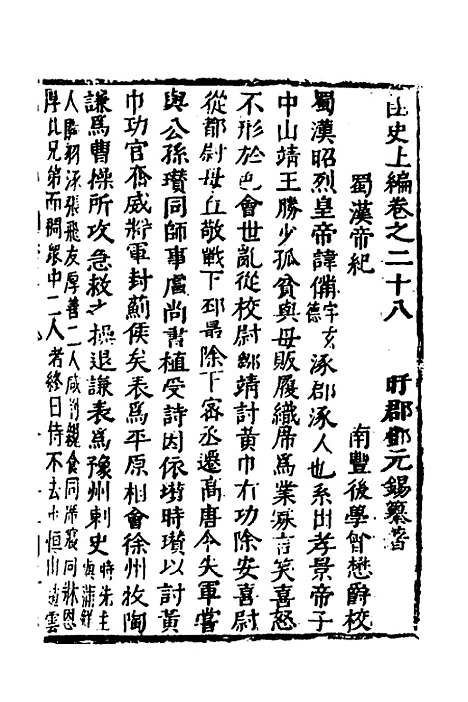 函史上編卷之二十八　盱郡鄧元錫纂著
蜀漢帝紀　南豐後學曾懋爵校
蜀漢昭烈皇帝諱備字玄德涿郡涿人也系出孝景帝子
中山靖王勝少孤貧與母販履織席爲業寡言笑喜怒
不形於色會世亂從校尉鄒靖討黃巾有功除安喜尉
從都尉毋丘毅戰下邳最除下密丞遷高唐令失軍嘗
與公孫瓚同師事盧尚書植受詩因依瓚時瓚以討黃
巾功官奮威將軍封薊侯矣表爲平原相會徐州牧陶
謙爲曹操所攻急救之操退謙表爲豫州刺史時先主
人關羽涿張飛友厚善二人咸親食同席寢同牀恩
厚比兄弟而稠眾中二人者終日侍不去也恒山趙雲